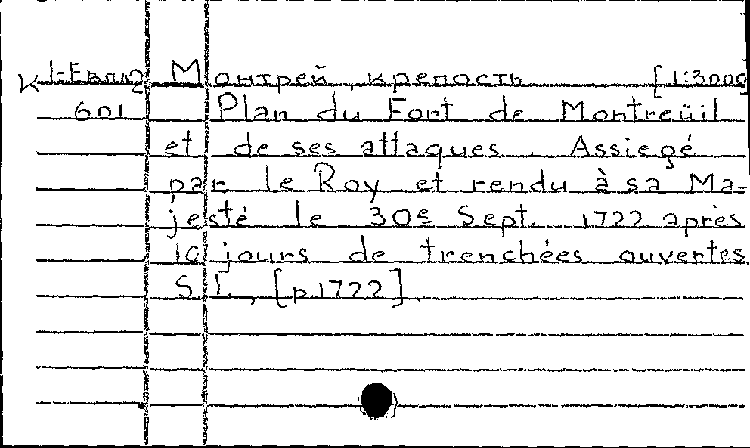 К 1-Европ2 Монтрей, крепость [1:3000]
601 Plan du Fort de Montreüil
et de ses attaques. Assiegé
par le Roy et rendu à sa Ma-
jesté le 30e Sept. 1722 après
10 jours de trenchées ouvertes
S. L., [p.1722]